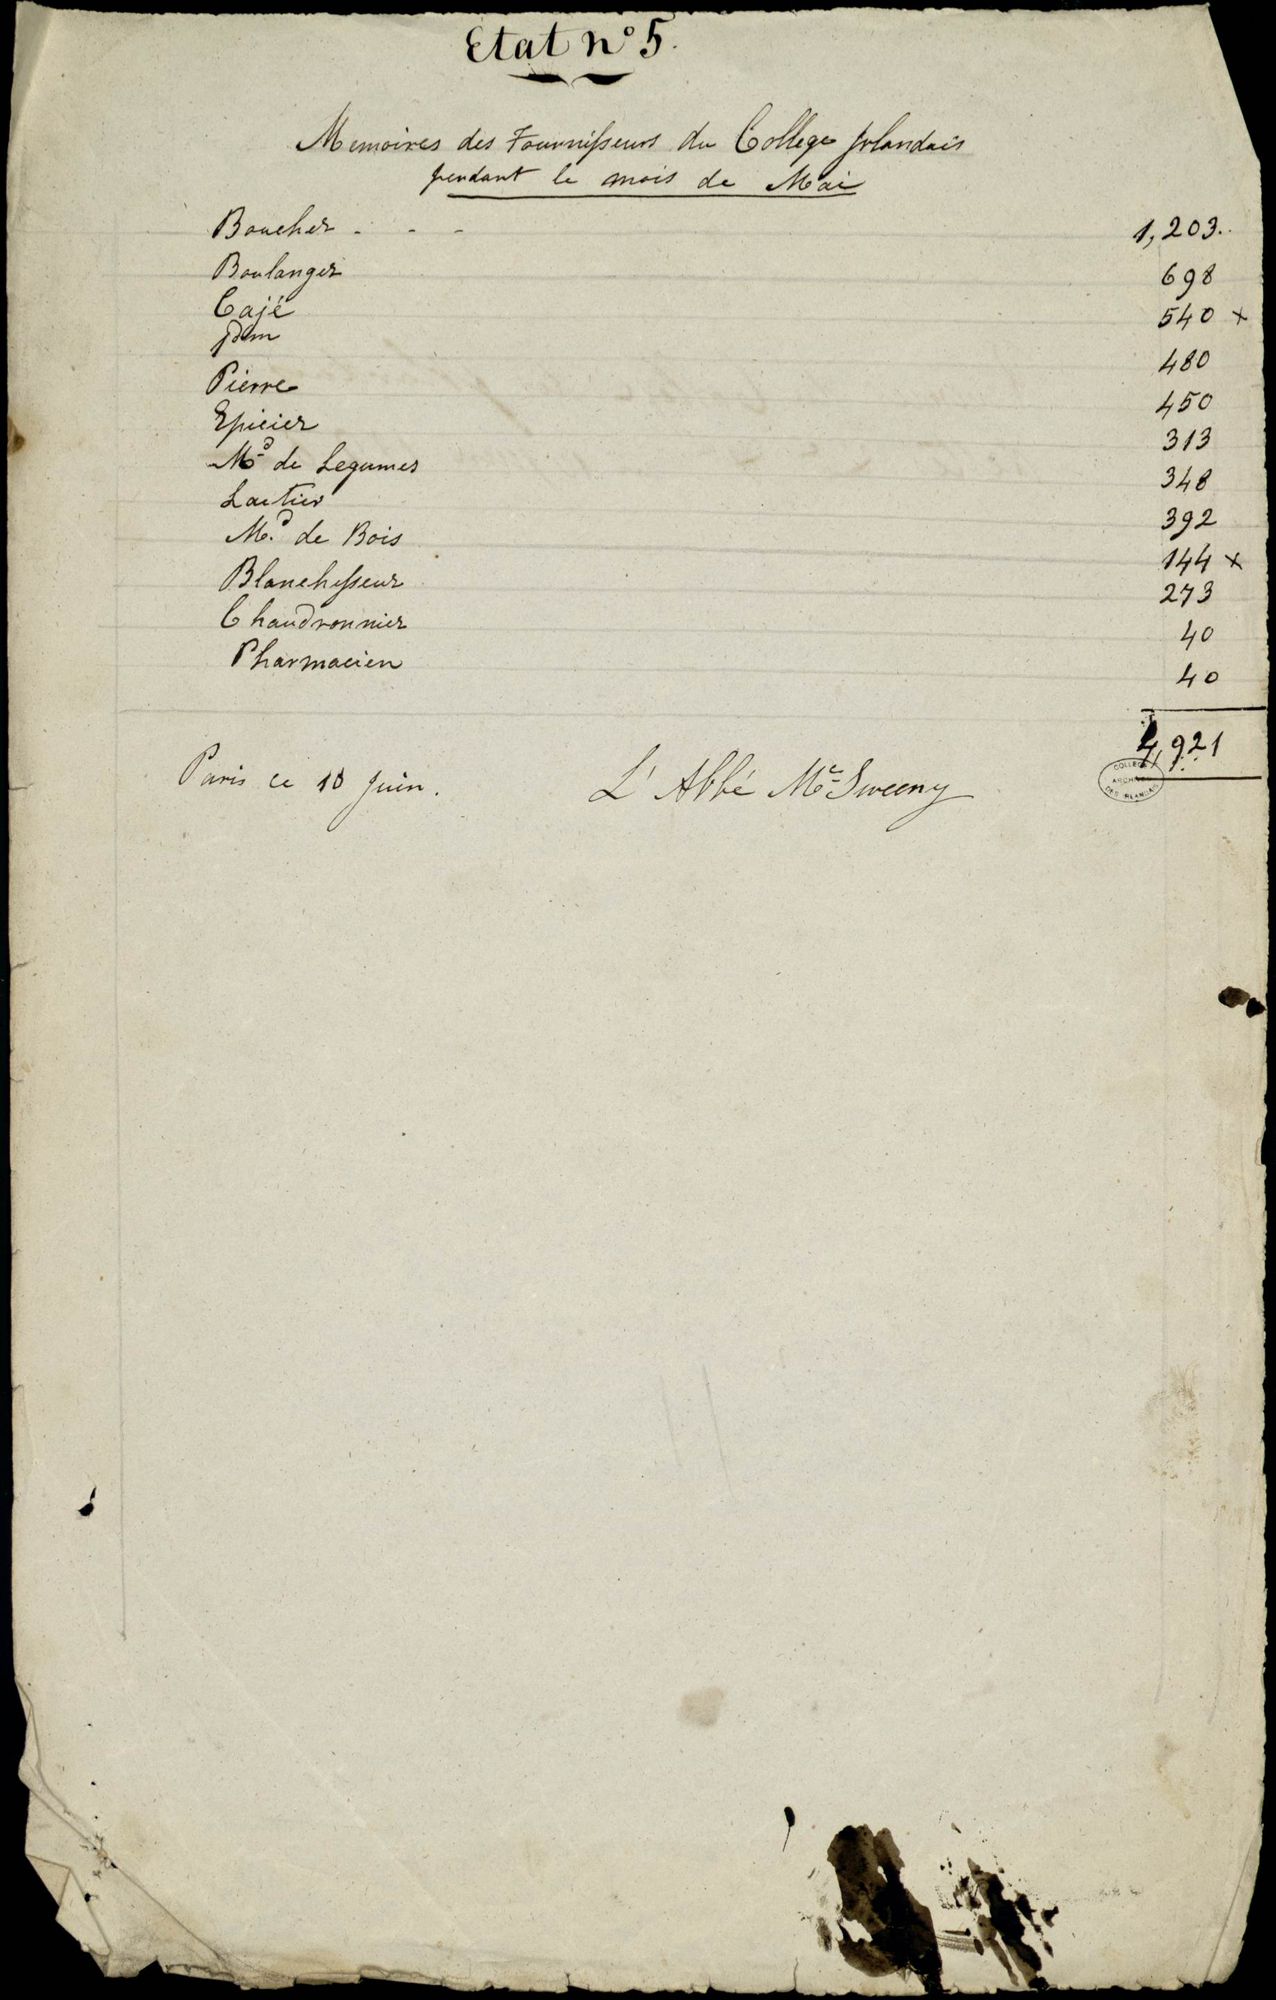 Etat nº 5.
Memoires des Fournisseurs du College Irlandais
pendant le mois de Mai
Boucher - - - 1,203.
Boulanger 698
Cajé 540 x
Idem 480
Pierre 450
Epicier 313
Md de Legumes 348
Laitier 392
M.d de Bois 144 x
Blanchisseur 273
Chaudronnier 40
Pharmacien 40
4,921
Paris ce 10 Juin. L'Abbé Mc Sweeny
COLLEGE
ARCHIVES
DES IRLANDAIS